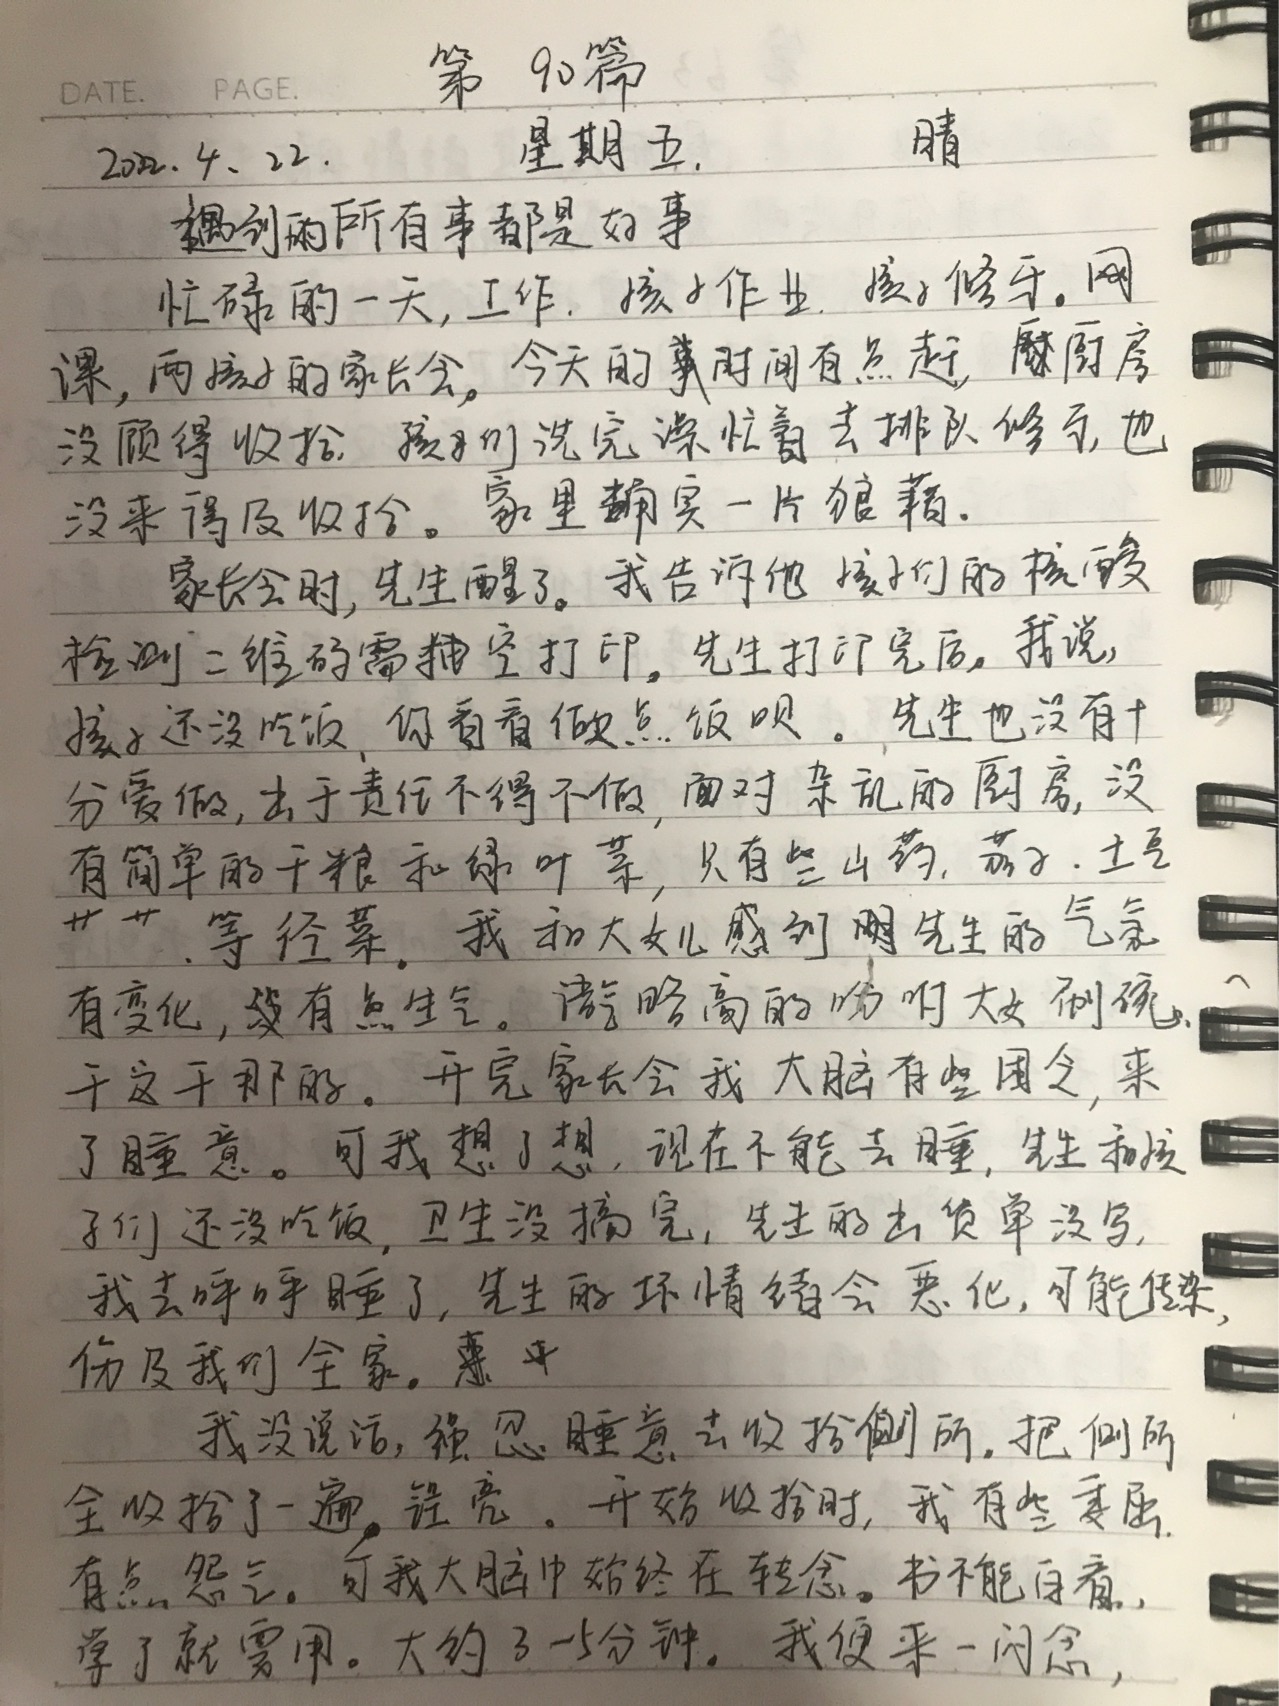 DATE. PAGE. 第90篇
2022.4.22. 星期五. 晴
遇到的所有事都是好事
忙碌的一天,工作.孩子作业.孩子修牙。网
课,两孩子的家长会。今天的时间有点赶,厨房
没顾得收拾.孩子们洗完澡忙着去排队修牙,也
没来得及收拾。家里一片狼藉.
家长会时,先生醒了。我告诉他孩子们的核酸
检测二维码需抽空打印。先生打印完后。我说,
孩子还没吃饭,你看看做点饭呗。先生也没有十
分爱做,出于责任不得不做,面对杂乱的厨房,没
有简单的干粮和绿叶菜,只有些山药.茄子.土豆
等菜。我和大女儿感到先生的气氛
有变化,有点生气。语气略高的吩咐大女刷碗、
干这干那的。开完家长会我大脑有些困乏,来
了睡意。可我想了想,现在不能去睡,先生和孩
子们还没吃饭,卫生没搞完,先生的出货单没写,
我去呼呼睡了,先生的坏情绪会恶化,可能传染,
伤及我们全家。
我没说话,强忍睡意去收拾侧所。把侧所
全收拾了一遍。锃亮。开始收拾时,我有些委屈.
有点怨气。可我大脑中始终在转念。书不能白看,
学了就要用。大约了一5分钟。我便来一闪念,